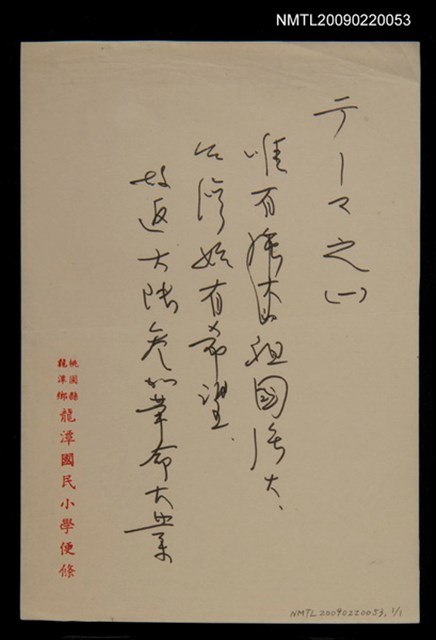 NMTL20090220053
テーマ之(一)
唯有祖國強大、
台灣始有希望.
故返大陸参加革命大業
桃園縣
龍潭鄉
龍潭國民小學便條
NMTL20090220053, 1/1